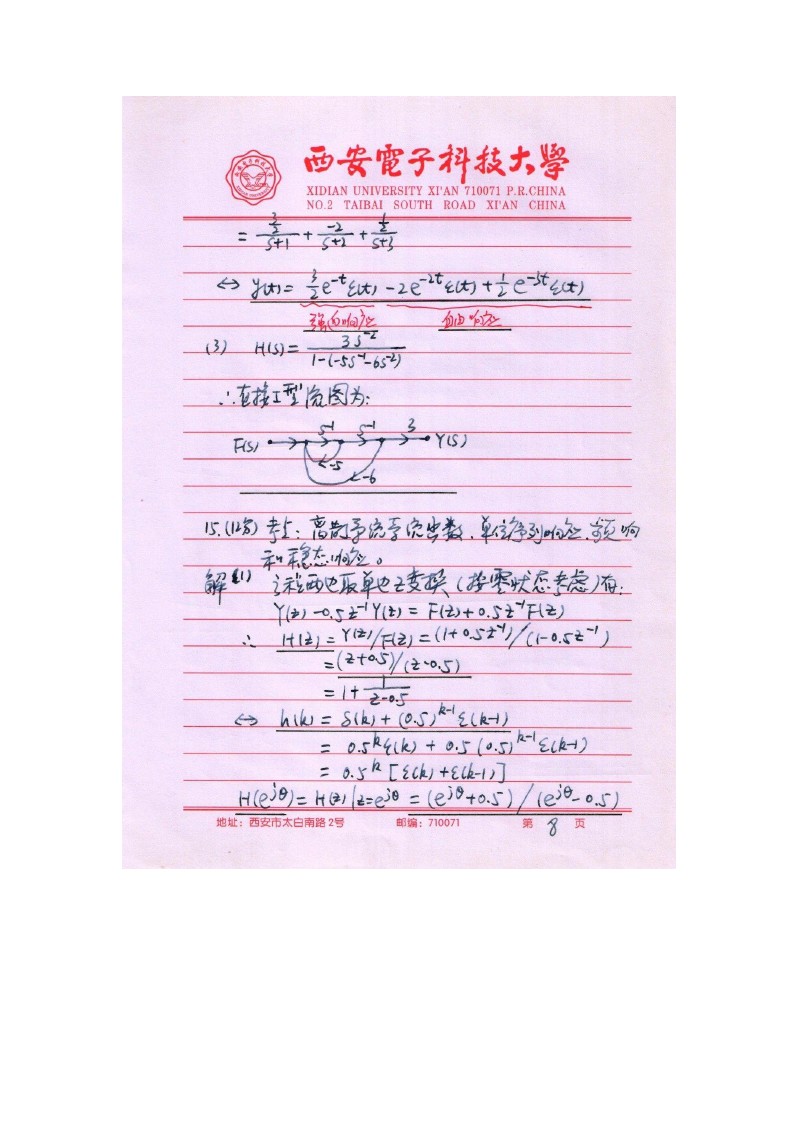 西安電子科技大學
XIDIAN UNIVERSITY XI'AN 710071 P.R.CHINA
NO.2 TAIBAI SOUTH ROAD XI'AN CHINA
= (3/2)/(s+1) + (-2)/(s+2) + (1/2)/(s+3)
⇔ y(t) = 3/2 e^{-t}ε(t) - 2e^{-2t}ε(t) + 1/2 e^{-3t}ε(t)
强迫响应 自由响应
(3) H(s) = 3s^{-2} / (1-(-5s^{-1}-6s^{-2}))
∴直接I型流图为:
F(s) s^{-1} s^{-1} 3 Y(s)
-5
-6
15.(12分) 考点: 离散系统系统函数、单位序列响应、频响
和稳态响应。
解(1) 方程两边取单边Z变换(按零状态考虑)有:
Y(z) - 0.5z^{-1}Y(z) = F(z) + 0.5z^{-1}F(z)
∴ H(z) = Y(z)/F(z) = (1+0.5z^{-1})/(1-0.5z^{-1})
= (z+0.5)/(z-0.5)
= 1 + 1/(z-0.5)
⇔ h(k) = δ(k) + (0.5)^{k-1}ε(k-1)
= 0.5^kε(k) + 0.5(0.5)^{k-1}ε(k-1)
= 0.5^k[ε(k)+ε(k-1)]
H(e^{jθ}) = H(z)|z=e^{jθ} = (e^{jθ}+0.5)/(e^{jθ}-0.5)
地址: 西安市太白南路2号 邮编: 710071 第 8 页